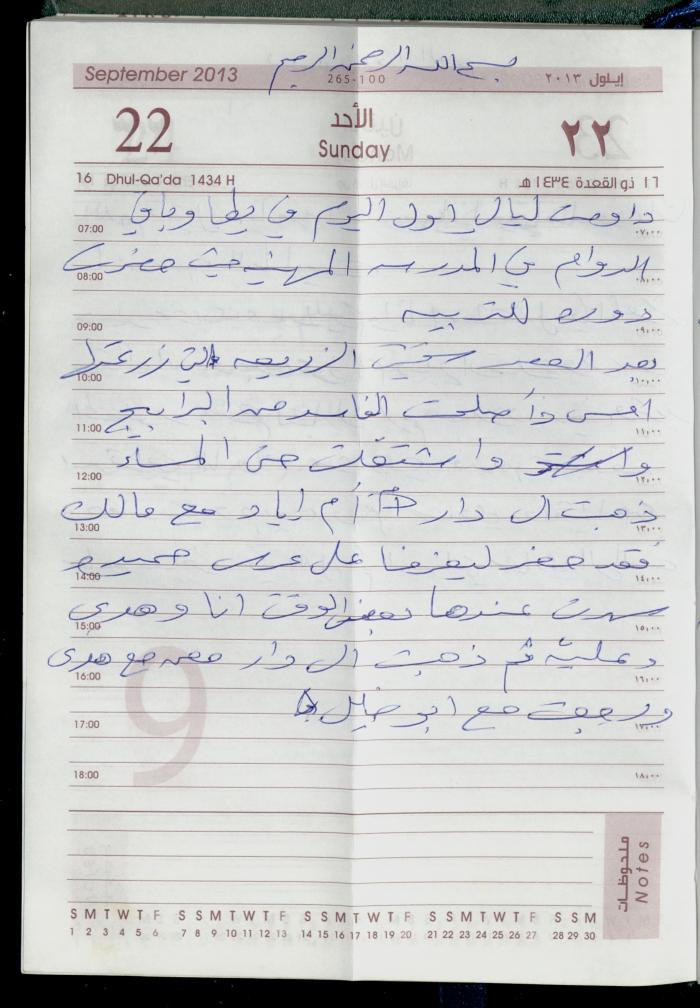 بسم الله الرحمن الرحيم
September 2013 265-100 إيلول ٢٠١٣
22 الأحد ٢٢
Sunday
16 Dhul-Qa'da 1434 H ١٦ ذو القعدة ١٤٣٤ هـ
داومت ليال اول اليوم في يطا وباقي
07:00 ٠٧,٠٠
الدوام في المدرسه المهنيه حيث حضرت
08:00 ٠٨,٠٠
دوره للتربيه
09:00 ٠٩,٠٠
بعد العصر سقيت الزريعه التي زرعتها
10:00 ١٠,٠٠
امس وأصلحت الفاسد من البرابيج
11:00 ١١,٠٠
واشتغلت حتى المساء
12:00 ١٢,٠٠
ذهبت ال دار أم اياد مع مالك
13:00 ١٣,٠٠
فقد حضر ليعزمنا على عرس
14:00 ١٤,٠٠
سهرت عندها بعض الوقت انا وهدى
15:00 ١٥,٠٠
وعليه ثم ذهبت ال دار مع هدى
16:00 ١٦,٠٠
ورجعت مع ابو خليل
17:00 ١٧,٠٠
9
18:00 ١٨,٠٠
ملحوظات
Notes
S M T W T F S S M T W T F S S M T W T F S S M T W T F S S M
1 2 3 4 5 6 7 8 9 10 11 12 13 14 15 16 17 18 19 20 21 22 23 24 25 26 27 28 29 30